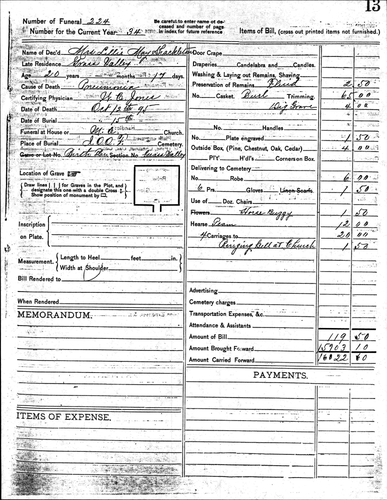 13
Number of Funeral 224
Number for the Current Year 34
Be careful to enter name of deceased and number of page in index for future reference
Items of Bill, (cross out printed items not furnished.)
Name of Dec'd Mrs Lillie May
Late Residence Grass Valley
Age 20 years months 17 days
Cause of Death Pneumonia
Certifying Physician W. C. Jones
Date of Death Oct 12th 95
Date of Burial 15th
Funeral at House or M. E. Church
Place of Burial I.O.O.F.
Grave or Lot No. Section Grass Valley
Location of Grave
Draw lines ( ) for Graves in the Plot, and designate this one with a double Cross
Show position of monument by
Inscription on Plate.
Measurement. Length to Heel feet in.
Width at Shoulder
Bill Rendered to
When Rendered
MEMORANDUM.
ITEMS OF EXPENSE.
Door Crape
Draperies Candelabra and Candles
Washing & Laying out Remains, Shaving
Preservation of Remains Fluid 2 50
No. Casket Burl Trimming 65 00
Dig Grave 4 00
No. Handles
Plate engraved 1 50
Outside Box (Pine, Chestnut, Oak, Cedar) 4 00
PIY H'd'l's Corners on Box
Delivering to Cemetery
No. Robe 6 00
6 Prs. Gloves Linen Scarfs 1 50
Use of Doz. Chairs
Flowers Horse Buggy 1 50
Hearse Team 12 00
4 Carriages to 20 00
Ringing Bell at Church 1 50
Advertising
Cemetery charges
Transportation Expenses, &c.
Attendance & Assistants
Amount of Bill 119 50
Amount Brought Forward 15903 10
Amount Carried Forward 16022 60
PAYMENTS.